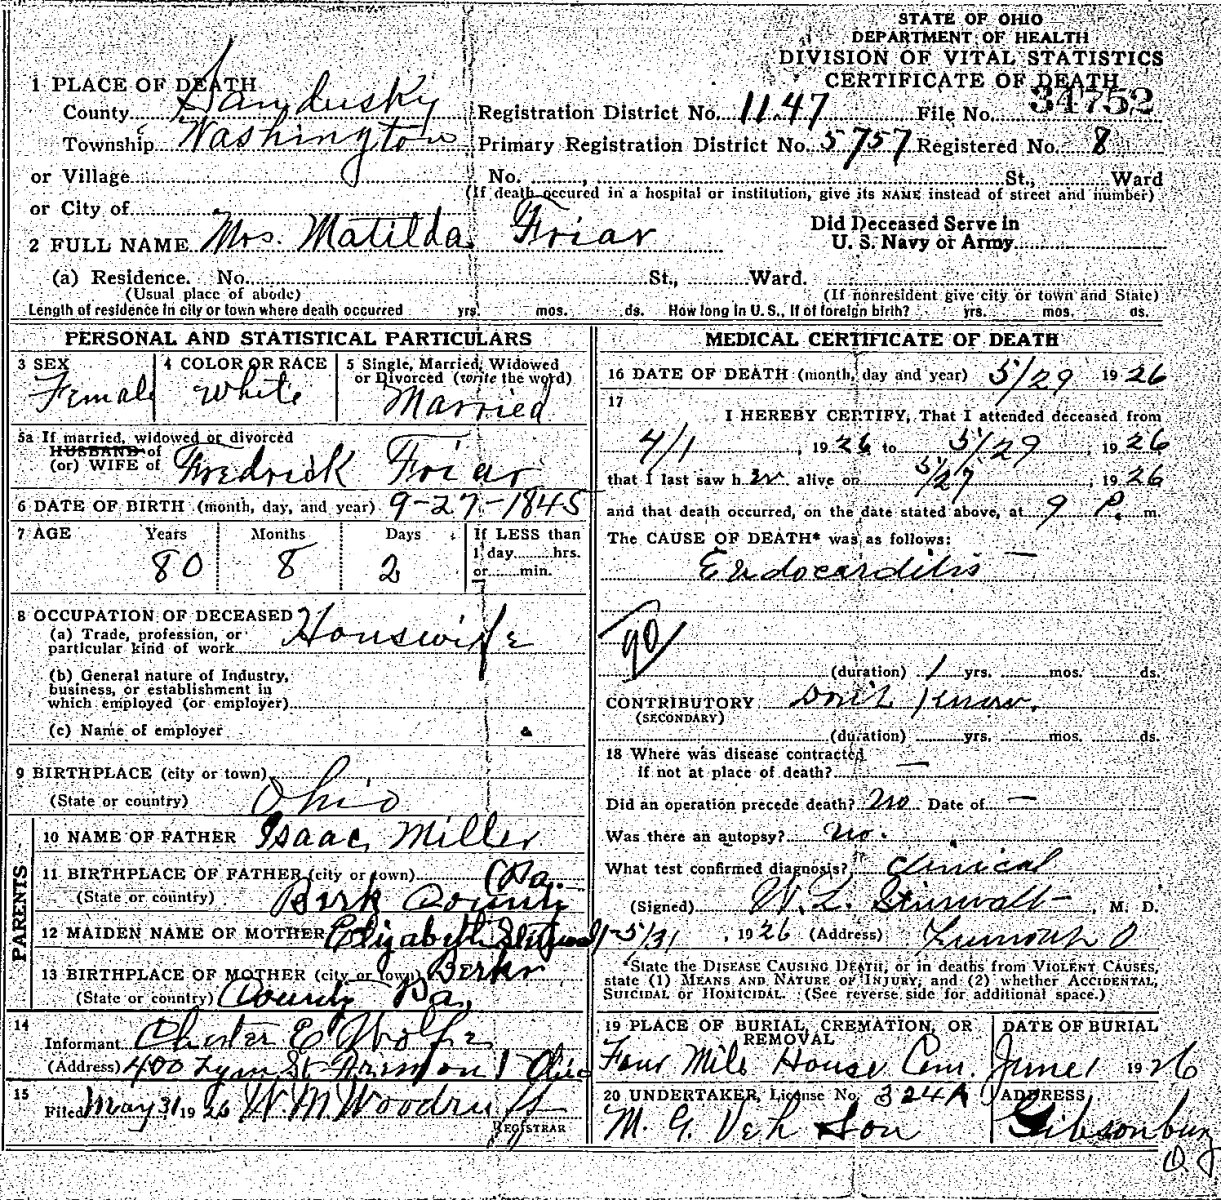 STATE OF OHIO
DEPARTMENT OF HEALTH
DIVISION OF VITAL STATISTICS
CERTIFICATE OF DEATH
1 PLACE OF DEATH
County Sandusky Registration District No. 1147 File No. 34752
Township Washington Primary Registration District No. 5757 Registered No. 8
or Village No. , St., Ward
(If death occured in a hospital or institution, give its NAME instead of street and number)
or City of
2 FULL NAME Mrs. Matilda Friar
Did Deceased Serve in
U. S. Navy or Army
(a) Residence. No. St., Ward.
(Usual place of abode) (If nonresident give city or town and State)
Length of residence in city or town where death occurred yrs. mos. ds. How long in U. S., if of foreign birth? yrs. mos. ds.
PERSONAL AND STATISTICAL PARTICULARS
3 SEX 4 COLOR OR RACE 5 Single, Married, Widowed
or Divorced (write the word)
Female White Married
5a If married, widowed or divorced
HUSBAND of
(or) WIFE of Fredrick Friar
6 DATE OF BIRTH (month, day, and year) 9-27-1845
7 AGE Years Months Days If LESS than
1 day hrs.
or min.
80 8 2
8 OCCUPATION OF DECEASED
(a) Trade, profession, or
particular kind of work Houswife
(b) General nature of Industry,
business, or establishment in
which employed (or employer)
(c) Name of employer
9 BIRTHPLACE (city or town)
(State or country) Ohio
PARENTS
10 NAME OF FATHER Isaac Miller
11 BIRTHPLACE OF FATHER (city or town) (Pa.
(State or country) Berk County
12 MAIDEN NAME OF MOTHER Elizabeth
13 BIRTHPLACE OF MOTHER (city or town) Berks
(State or country) County Pa.
14
Informant Chester E Wolfe
(Address) 400 St Fremont Ohio
15
Filed May 31 1926 W M Woodruff
REGISTRAR
MEDICAL CERTIFICATE OF DEATH
16 DATE OF DEATH (month, day and year) 5/29 1926
17
I HEREBY CERTIFY, That I attended deceased from
4/1, 1926 to 5/29, 1926
that I last saw her alive on 5/27, 1926
and that death occurred, on the date stated above, at 9 P. m.
The CAUSE OF DEATH* was as follows:
Endocarditis —
90
(duration) 1 yrs. mos. ds.
CONTRIBUTORY Don't know.
(SECONDARY)
(duration) yrs. mos. ds.
18 Where was disease contracted
if not at place of death? —
Did an operation precede death? No Date of —
Was there an autopsy? No.
What test confirmed diagnosis? Clinical
(Signed) W. L. Stinwalt, M. D.
5/31, 1926 (Address)
*State the DISEASE CAUSING DEATH, or in deaths from VIOLENT CAUSES,
state (1) MEANS AND NATURE OF INJURY; and (2) whether ACCIDENTAL,
SUICIDAL or HOMICIDAL. (See reverse side for additional space.)
19 PLACE OF BURIAL, CREMATION, OR
REMOVAL
DATE OF BURIAL
Four Mile House Cem. June 1 1926
20 UNDERTAKER, License No. 324A ADDRESS
M. G. Veh & Son Gibsonburg
O.